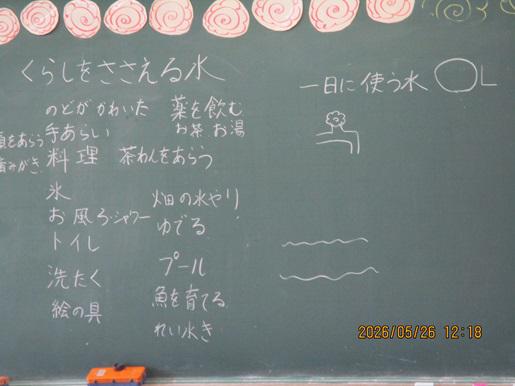 くらしをささえる水
一日に使う水 ◯L
のどがかわいた 薬を飲む
顔をあらう 手あらい お茶 お湯
歯みがき 料理 茶わんをあらう
氷 畑の水やり
お風ろ・シャワー ゆでる
トイレ
プール
洗たく 魚を育てる
絵の具 れい水き
2026/05/26 12:18